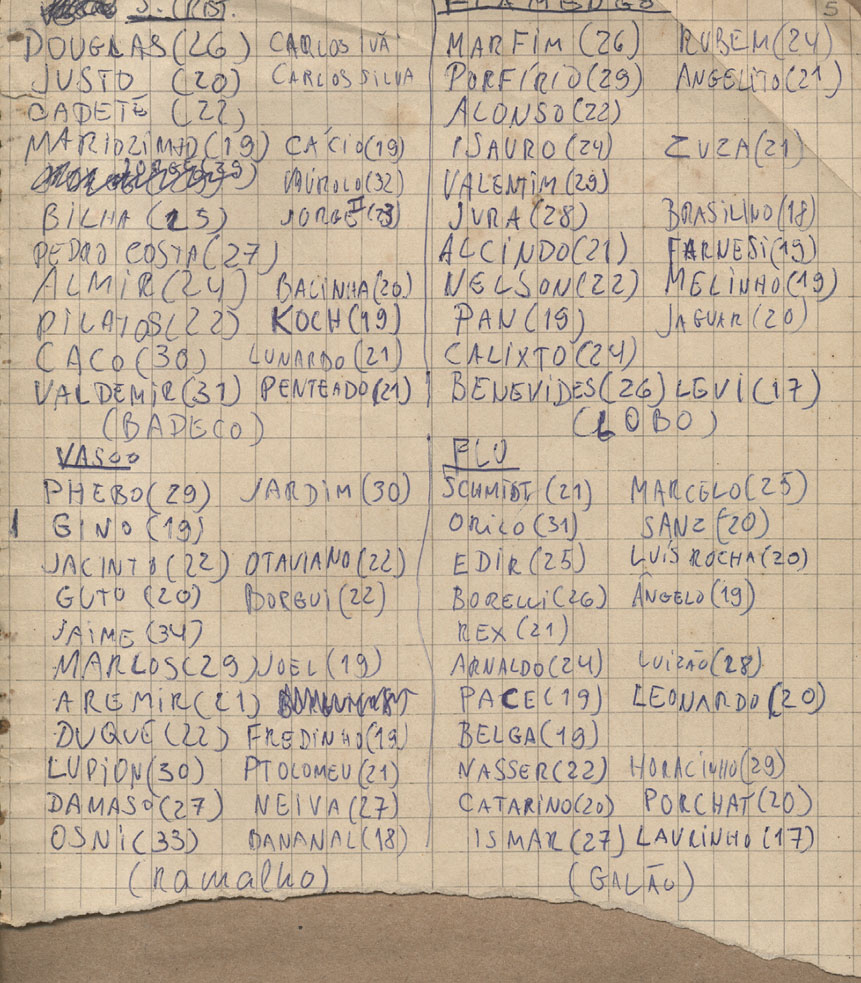 S. CRIST.
DOUGLAS (26) CARLOS IVÃ
JUSTO (20) CARLOS SILVA
CADETE (22)
MARIOZINHO (19) CÁCIO (19)
(32)
BILHA (25) JORGE II (23)
PEDRO COSTA (27)
ALMIR (24) BALINHA (20)
PILATOS (22) KOCH (19)
CACO (30) LUNARDO (21)
VALDEMIR (31) PENTEADO (21)
(BADECO)
FLAMENGO
5
MARFIM (26) RUBEM (24)
PORFÍRIO (29) ANGELITO (21)
ALONSO (22)
ISAURO (24) ZUZA (21)
VALENTIM (29)
JURA (28) BRASILINO (18)
ALCINDO (21) FARNESI (19)
NELSON (22) MELINHO (19)
PAN (19) JAGUAR (20)
CALIXTO (24)
BENEVIDES (26) LEVI (17)
(LOBO)
VASCO
PHEBO (29) JARDIM (30)
GINO (19)
JACINTO (22) OTAVIANO (22)
GUTO (20) BORGUI (22)
JAIME (34)
MARLOS (29) JOEL (19)
AREMIR (21)
DUQUE (22) FREDINHO (19)
LUPION (30) PTOLOMEU (21)
DAMASO (27) NEIVA (27)
OSNI (33) BANANAL (18)
(Ramalho)
FLU
SCHMIDT (21) MARCELO (25)
ORICO (31) SANZ (20)
EDIR (25) LUÍS ROCHA (20)
BORELLI (26) ÂNGELO (19)
REX (21)
ARNALDO (24) LUIZÃO (28)
PACE (19) LEONARDO (20)
BELGA (19)
NASSER (22) HORACINHO (29)
CATARINO (20) PORCHAT (20)
ISMAR (27) LAURINHO (17)
(GALÃO)